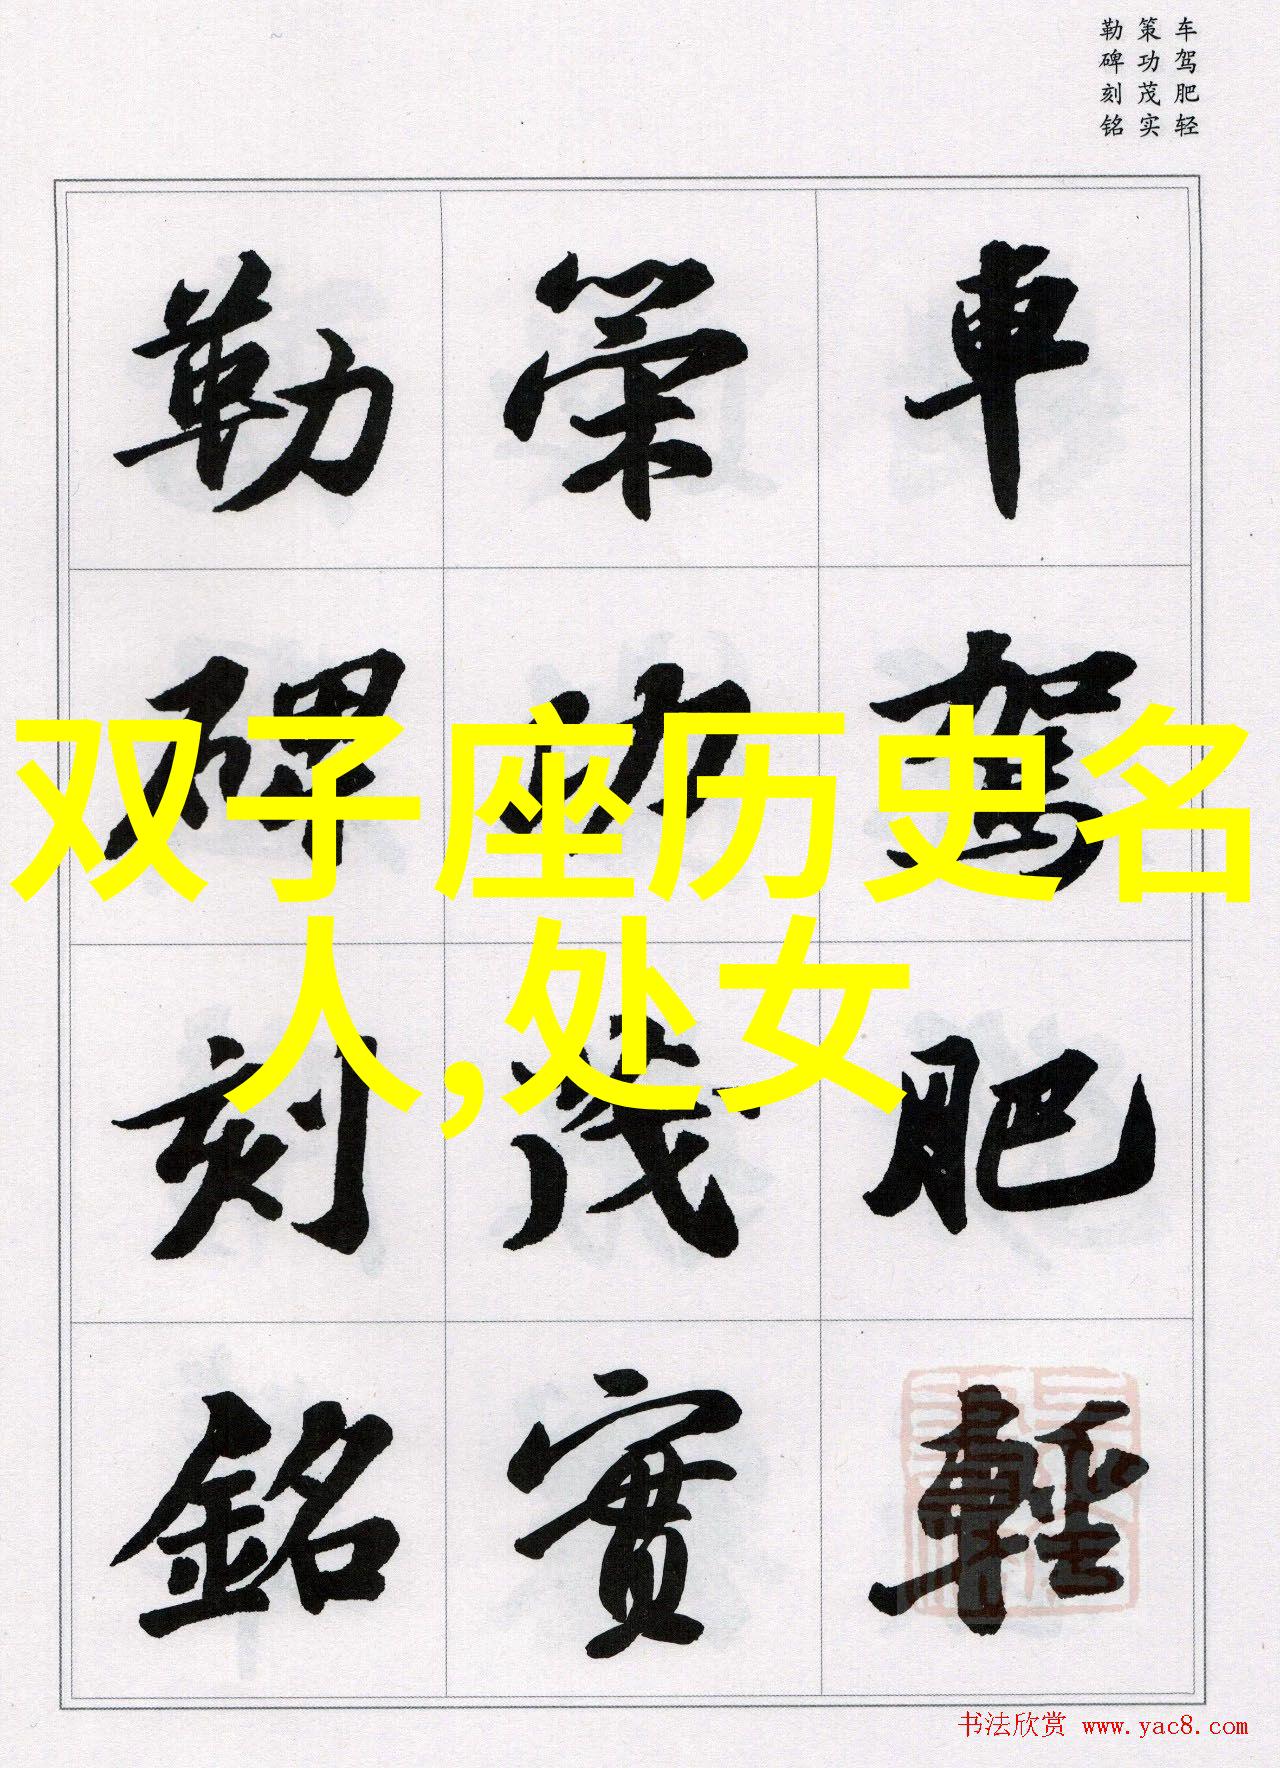 车驾肥轻
策功茂实
勒碑刻铭
車駕肥輕
策功茂實
勒碑刻銘
双子座历史名
人,处女
书法欣赏 www.yac8.com